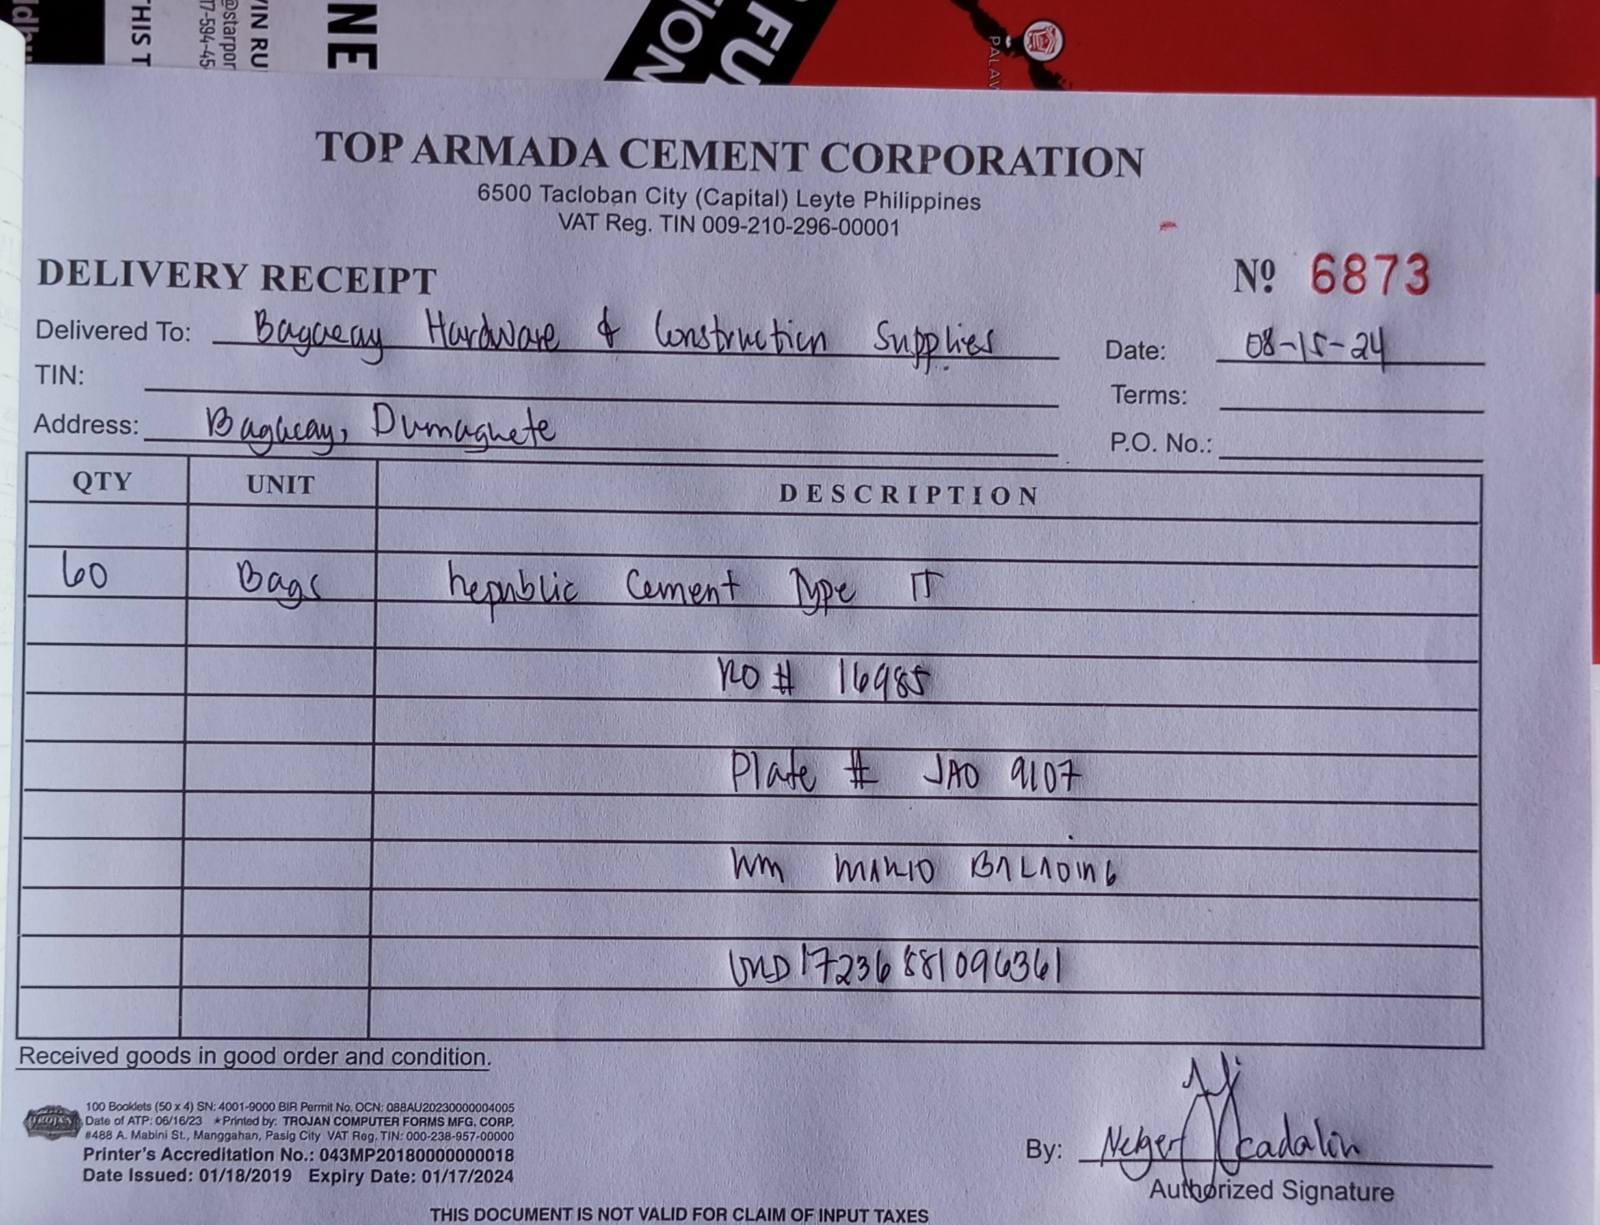 THIS T
@starpor
17-594-45
IN RU
NE
ION
FU
PALAW
TOP ARMADA CEMENT CORPORATION
6500 Tacloban City (Capital) Leyte Philippines
VAT Reg. TIN 009-210-296-00001
DELIVERY RECEIPT
Nº 6873
Delivered To: Bagacay Hardware & Construction Supplies
Date: 08-15-24
TIN:
Terms:
Address: Bagacay, Dumaguete
P.O. No.:
QTY UNIT DESCRIPTION
60 Bags Republic Cement Type IT
RO # 16985
Plate # JAO 9107
WM MARIO BALADING
UND17236881096361
Received goods in good order and condition.
100 Booklets (50 x 4) SN: 4001-9000 BIR Permit No. OCN: 088AU20230000004005
Date of ATP: 06/16/23 ★Printed by: TROJAN COMPUTER FORMS MFG. CORP.
#488 A. Mabini St., Manggahan, Pasig City VAT Reg. TIN: 000-238-957-00000
Printer's Accreditation No.: 043MP20180000000018
Date Issued: 01/18/2019 Expiry Date: 01/17/2024
By: Nelger Cadalin
Authorized Signature
THIS DOCUMENT IS NOT VALID FOR CLAIM OF INPUT TAXES